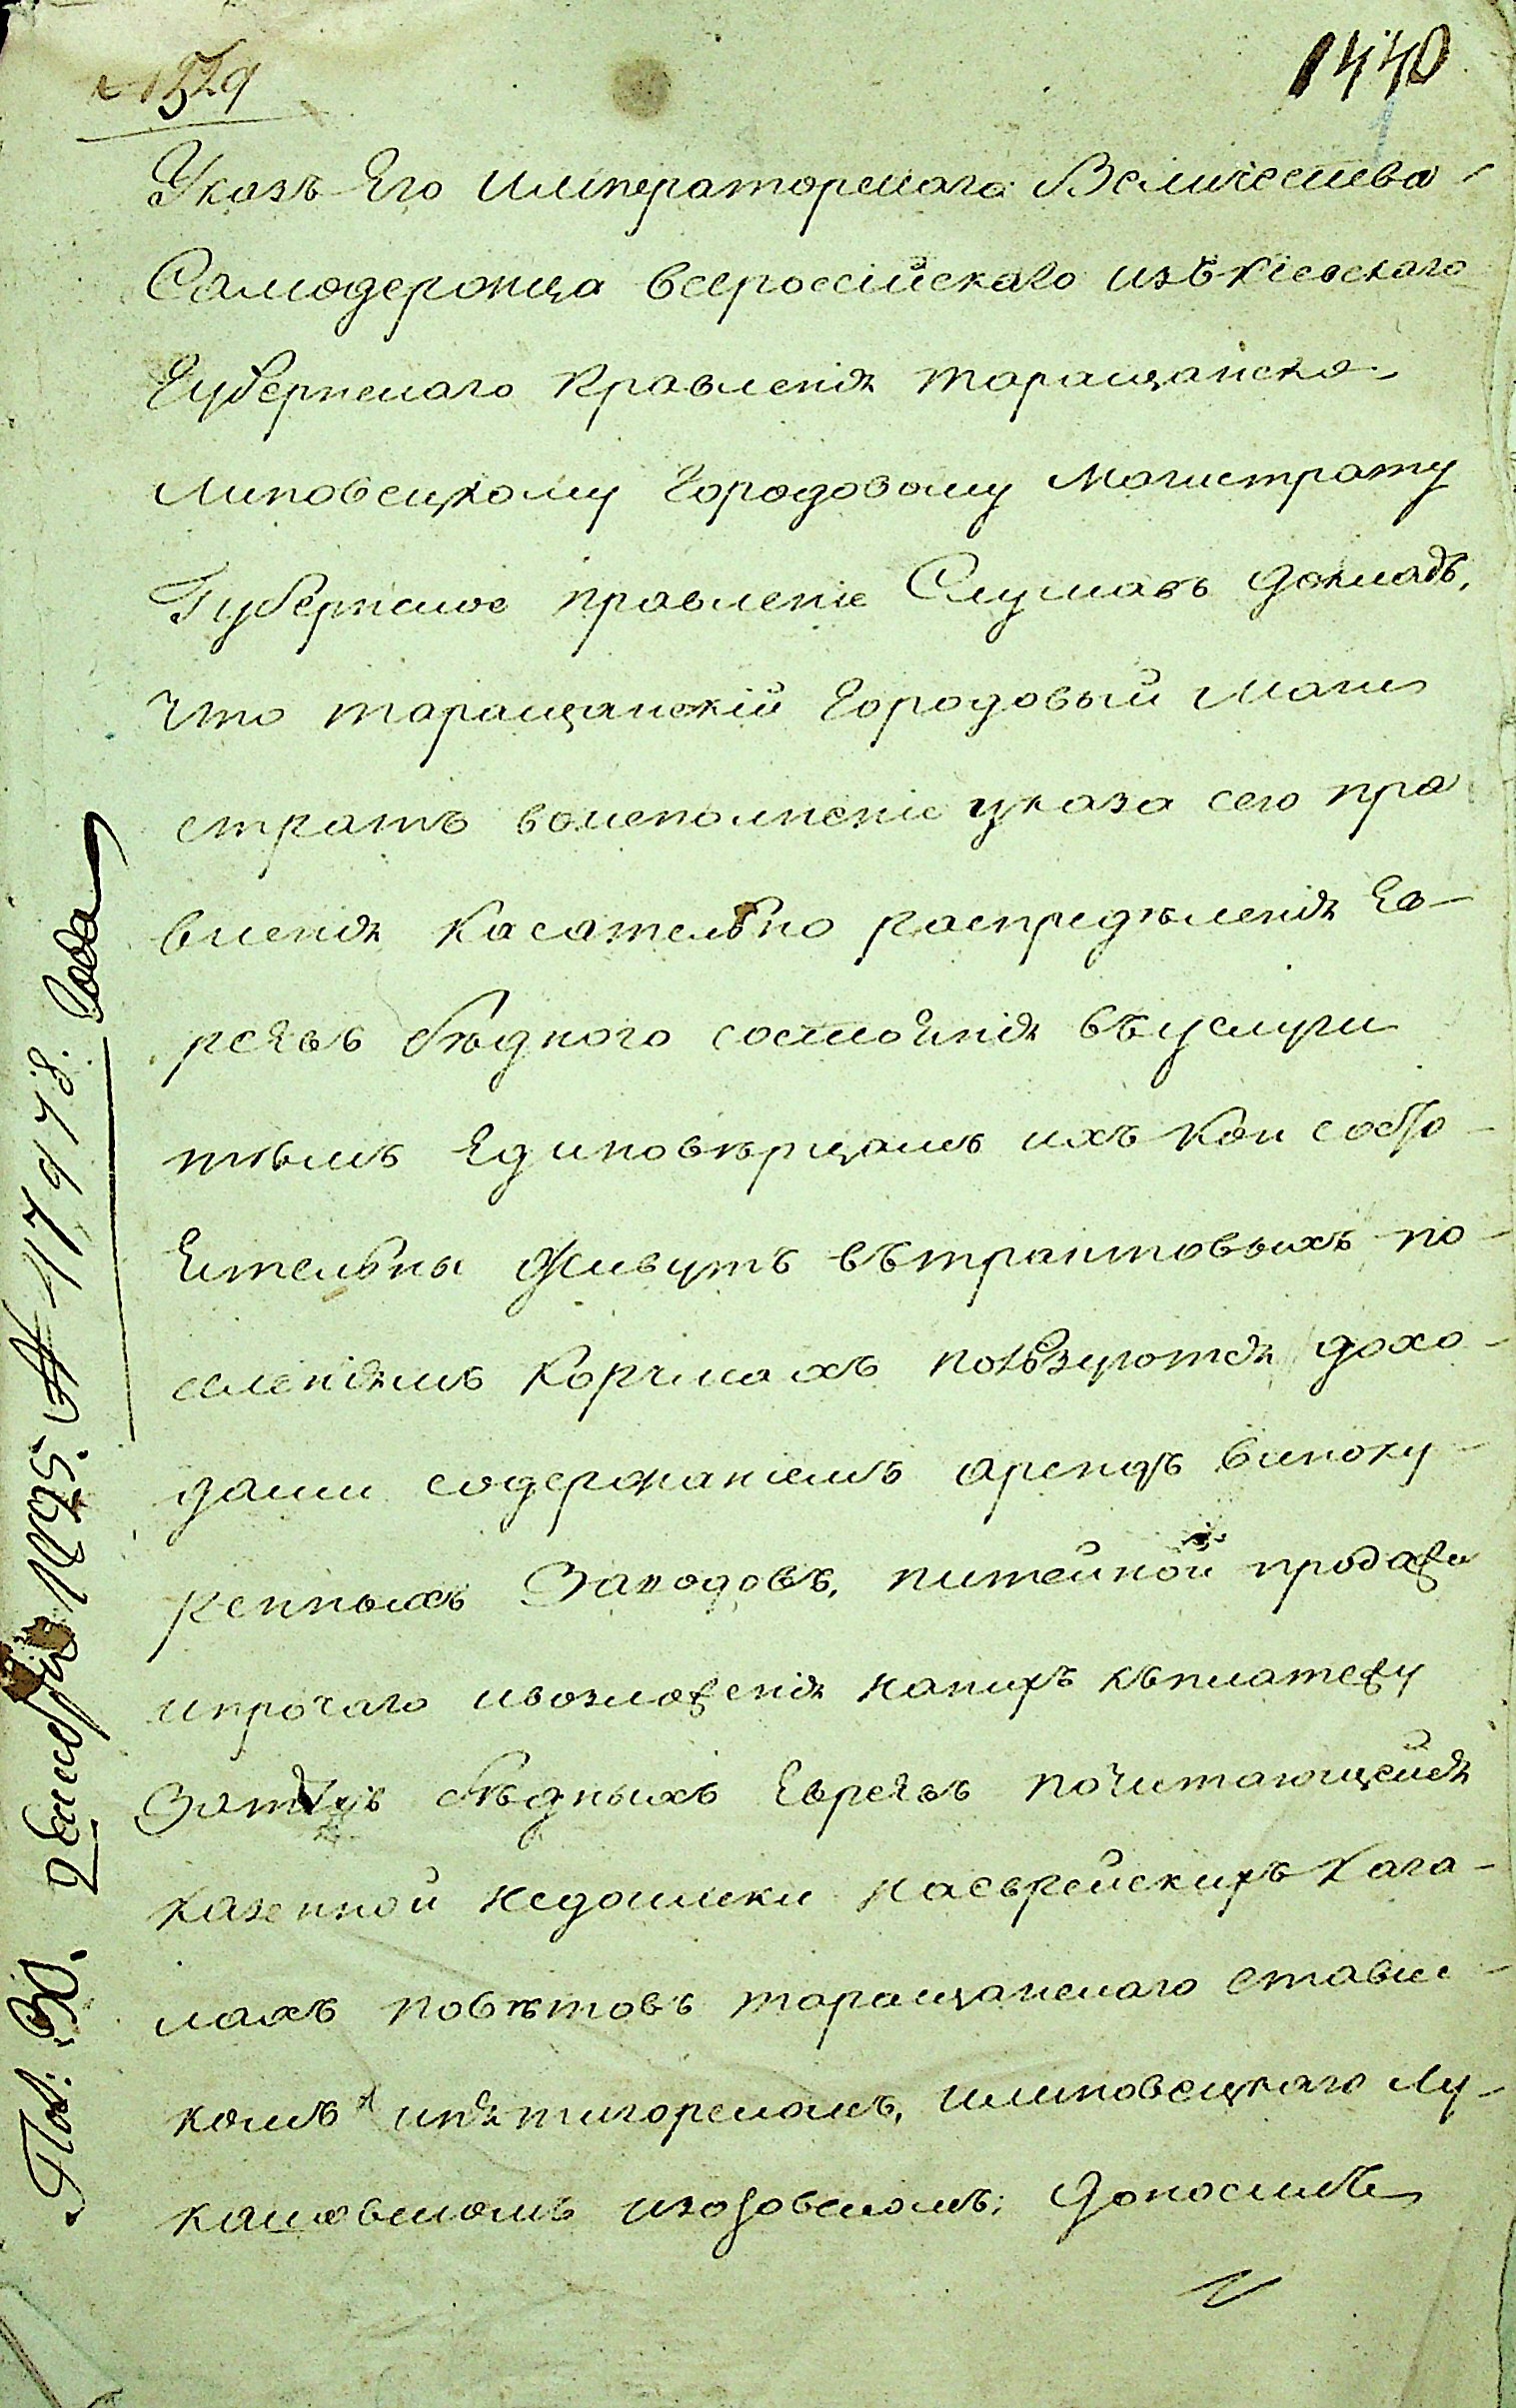 № 1529
1440
Указъ Его Императорскаго Величества
Самодержца всероссійскаго изъ кіевскаго
Губернскаго Правленія таращанско
липовецкому Городовому Магистрату
Губернское правленіе Слушавъ докладъ,
что таращанскій Городовый Маги
стратъ воисполненіе указа сего пра
вленія касательно распредѣленія Ев-
реевъ бѣднаго состоянія въуслуги
тѣмъ Единовѣрцамъ ихъ кои
живутъ вътрактовыхъ по-
селеніямъ Корчмахъ ползуются дохо-
дами содержаніемъ арендъ виноку-
ренныхъ Заводовъ, питейной продажи
ипрочаго ивозложенія нанихъ къплатежу
затѣхъ бѣдныхъ Евреевъ почитающейся
казенной недоимки наеврейскихъ Кага-
лахъ повѣтовъ таращанскаго стави-
комъ ипятигорскомъ, илиповецкаго лу-
кашовскомъ изозовскомъ; доноситъ
Пол: 30. Генваря 1825. № 17978. Года